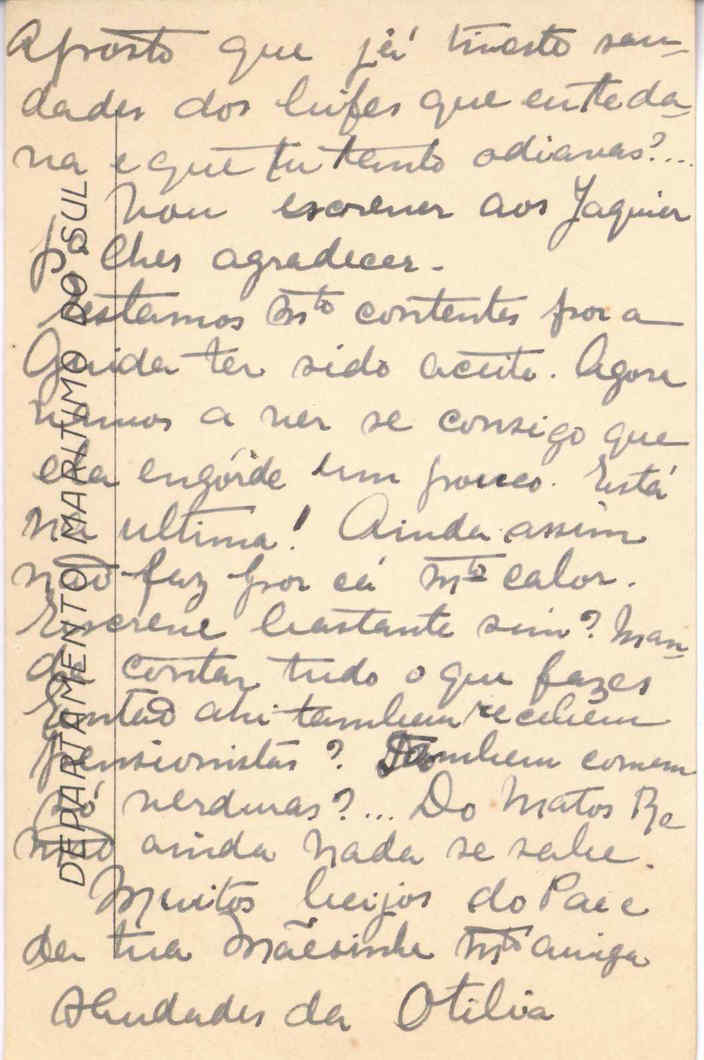 Aposto que já tiveste sau-
dades dos bifes que eu te da-
va e que tu tanto odiavas?...
Vou escrever aos Jaquier
pa lhes agradecer.
Estamos mto contentes por a
Guida ter sido aceite. Agora
vamos a ver se consigo que
ela engórde um pouco. Está
na ultima! Ainda assim
não faz por cá mto calor.
Escreve bastante sim? Man-
da contar tudo o que fazes
Então ahi tambem recebem
pensionistas? Tambem comem
só verduras?... Do Matos Re
não ainda nada se sabe.
Muitos beijos do Pae e
da tua Mãesinha mto amiga
Saudades da Otilia
DEPARTAMENTO MARITIMO DO SUL